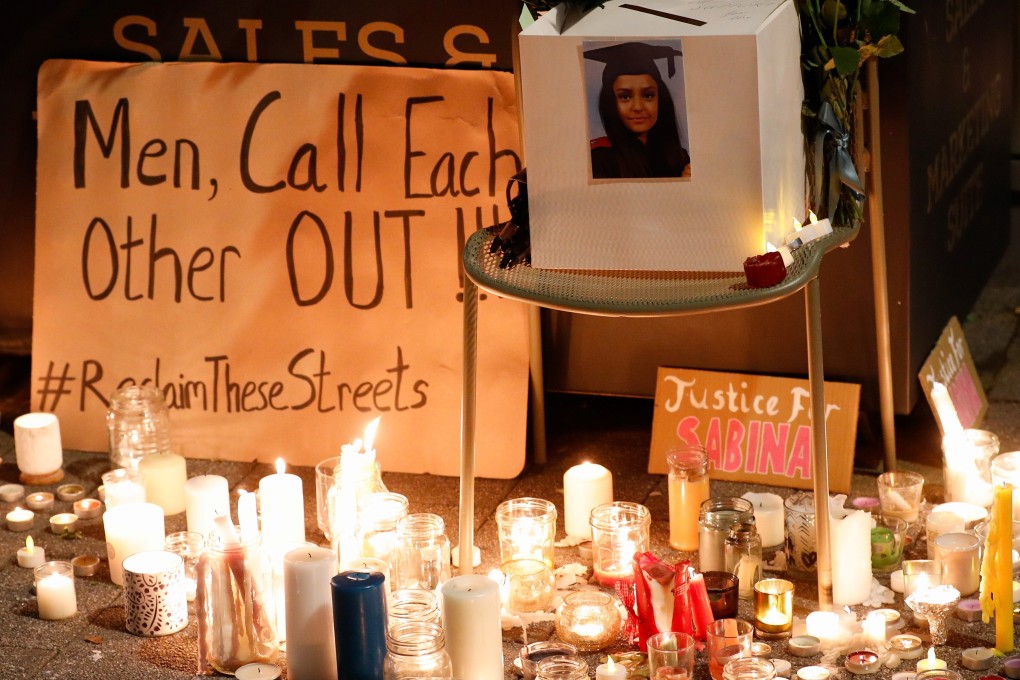 SALES &
Men, Call Each
Other OUT !!!
#ReclaimTheseStreets
Justice For
SABINA
SALES
&
MARKETING
SUITE
Justice For